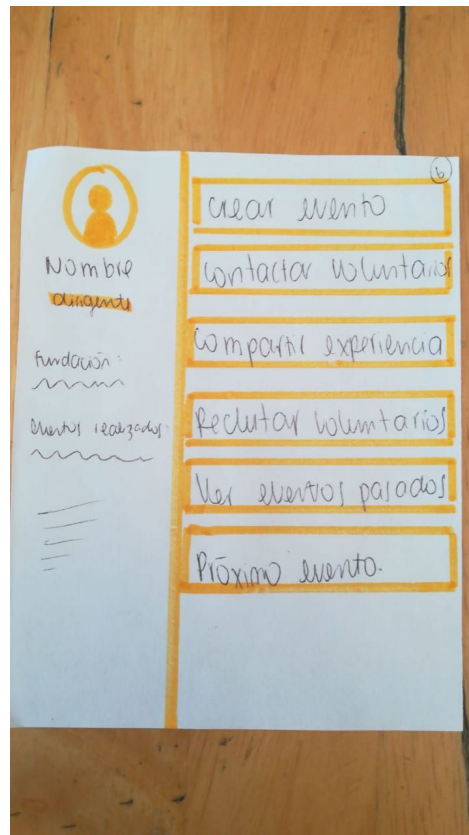 6
Nombre
dirigente
Fundación:
eventos realizados:
crear evento
contactar voluntarios
compartir experiencia
Reclutar voluntarios
Ver eventos pasados
Próximo evento.